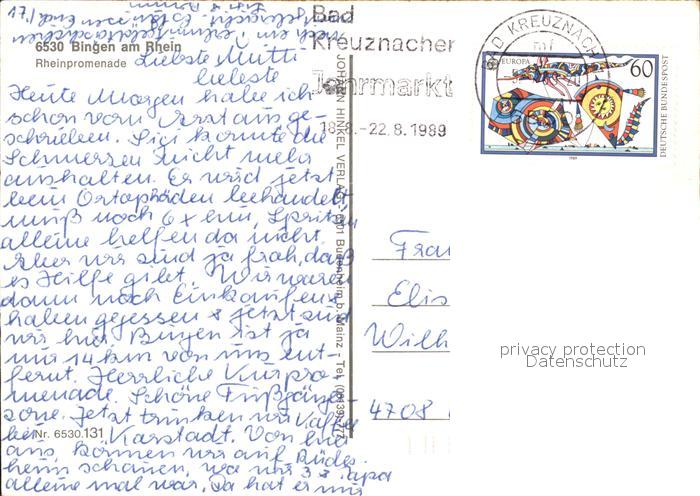 17./
6530 Bingen am Rhein
Rheinpromenade
Liebste Mutti
liebste
Heute Morgen habe ich
schon vom Arzt aus ge-
schrieben. Sigi konnte die
Schmerzen nicht mehr
aushalten. Er wird jetzt
beim Ortophäden behandelt,
muß noch 6 x hin, Spritzen
alleine helfen da nicht.
Aber wir sind ja froh, daß
es Hilfe gibt. Wir waren
dann noch Einkaufen &
haben gegessen & jetzt sind
wir hier. Bingen ist ja
nur 14 km von uns ent-
fernt. Herrliche Kurpro-
menade. Schöne Fußgänger-
zone. Jetzt trinken wir Kaffee
bei Karstadt. Von hier
aus, können wir auf Rüdes-
heim schauen, wo
alleine mal war. Da hat er mir
Nr. 6530.131
JOHANN HINKEL VERLAG
Budenheim b. Mainz
Bad
Kreuznacher
Jahrmarkt
18.8.-22.8.1989
BAD KREUZNACH
EUROPA
60
DEUTSCHE BUNDESPOST
1989
Frau
Elis
Wilh
4708
privacy protection
Datenschutz